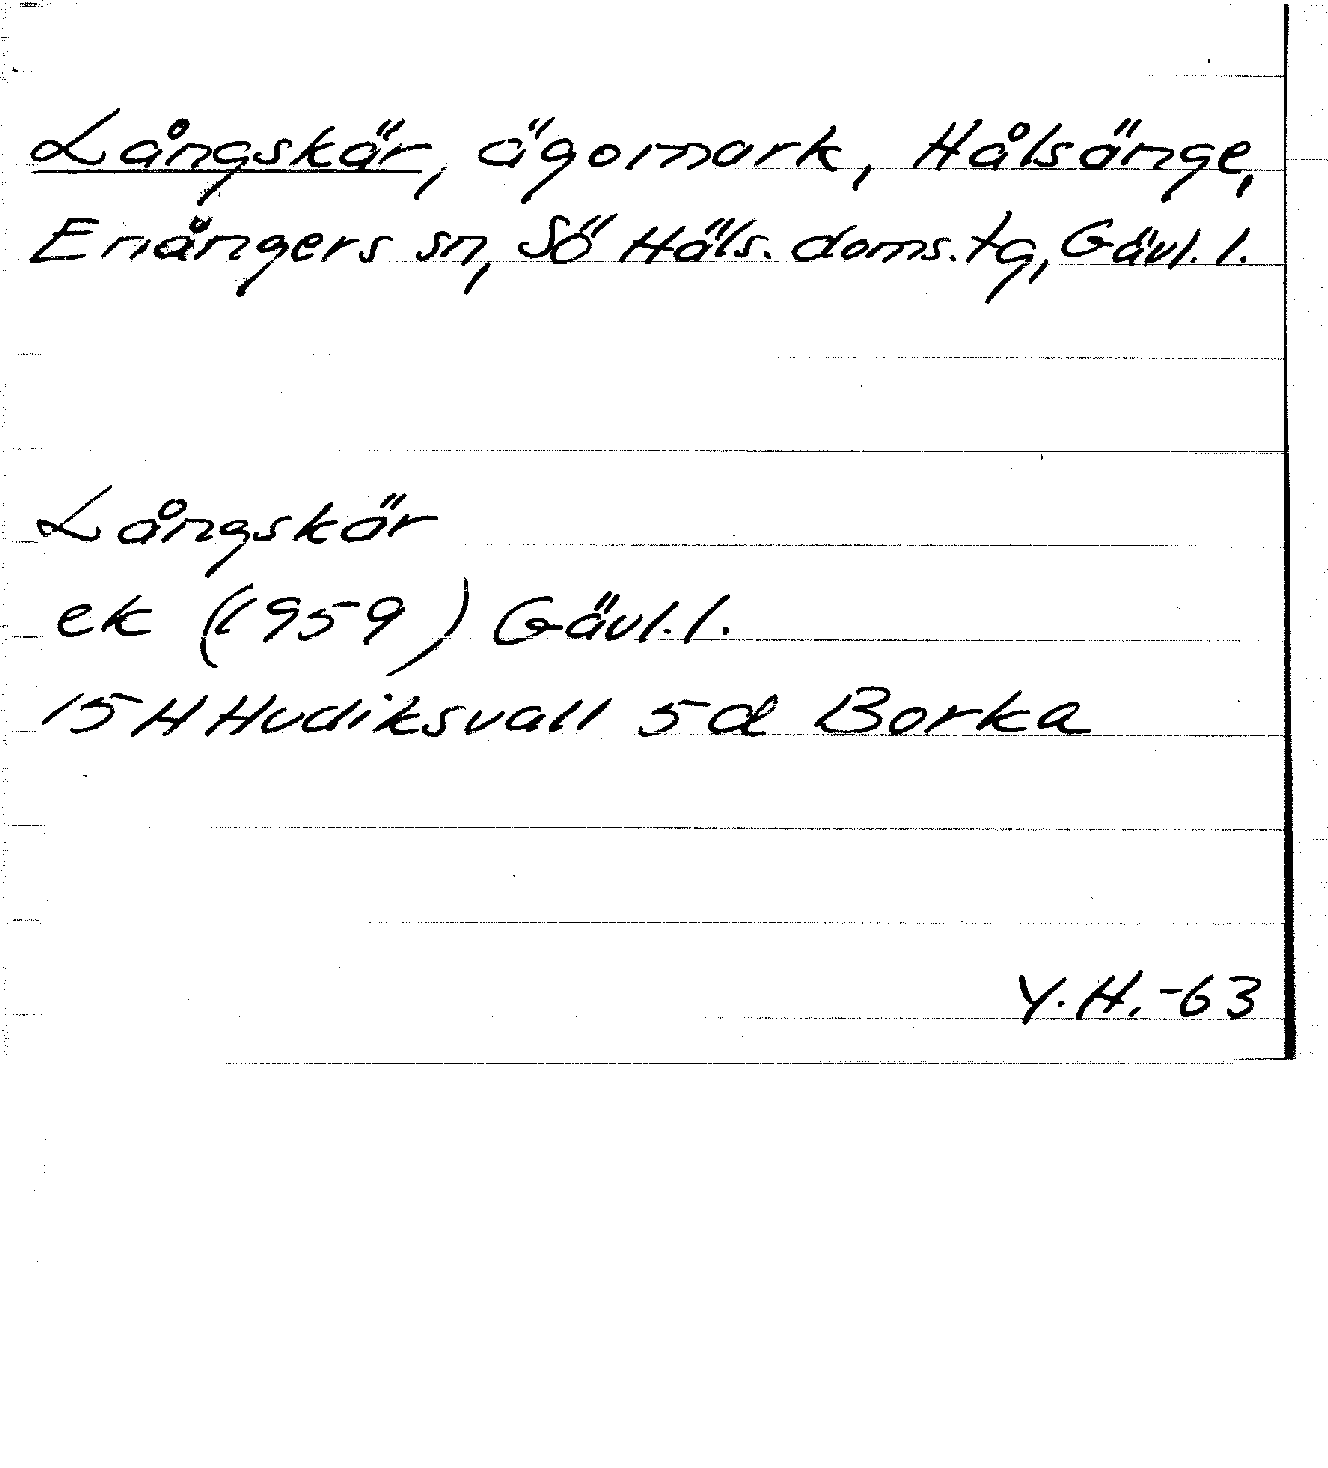 Långskär, ägomark, Hålsänge,
Enångers sn, Sö Häls. doms. tg, Gävl. l.
Långskär
ek (1959) Gävl. l.
15 H Hudiksvall 5 d Borka
Y. H. -63